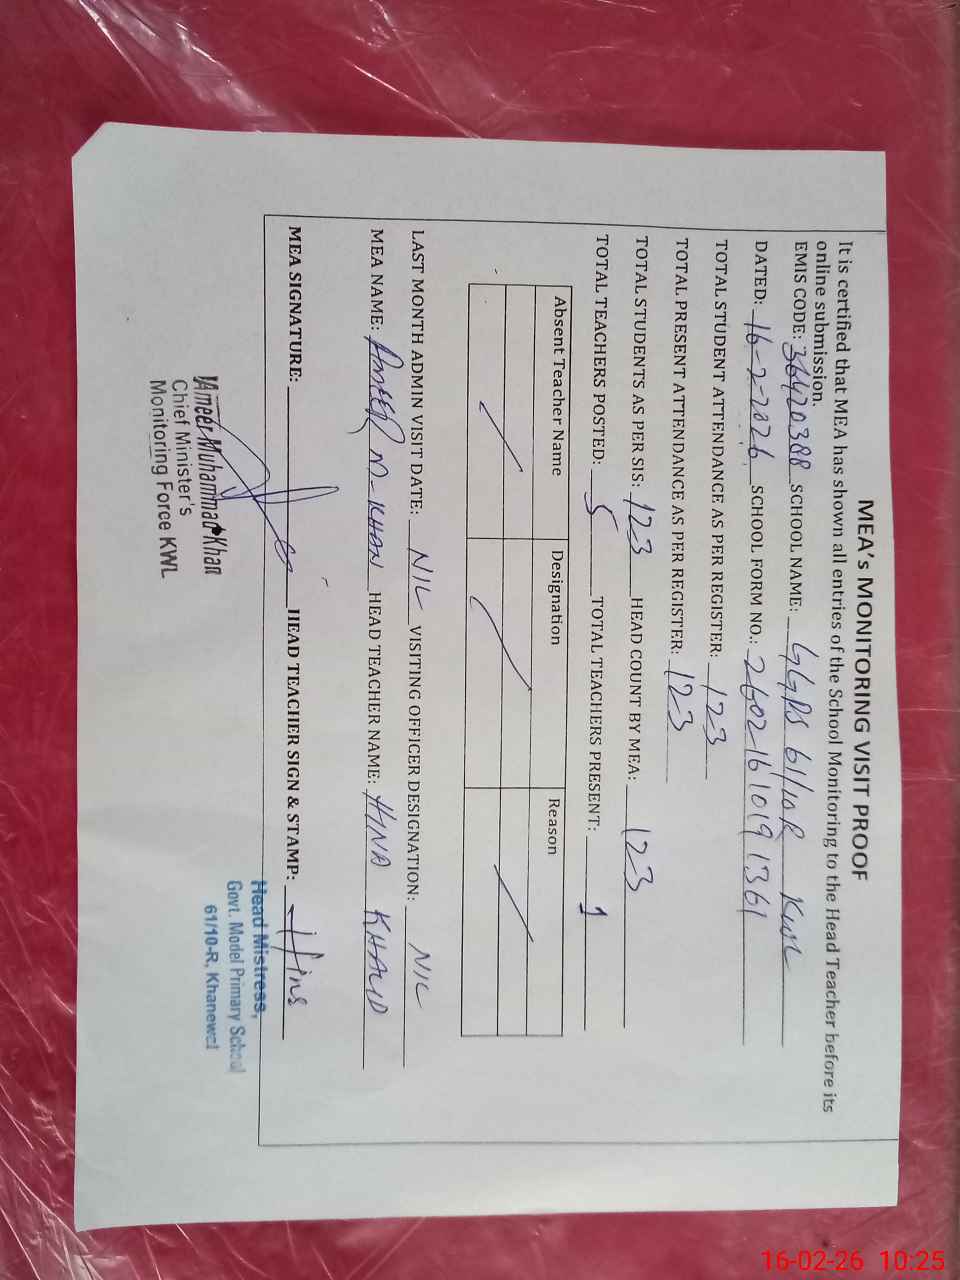 MEA's MONITORING VISIT PROOF
It is certified that MEA has shown all entries of the School Monitoring to the Head Teacher before its
online submission.
EMIS CODE: 36420388 SCHOOL NAME: GGPS 61/10R KWL
DATED: 16-2-2026 SCHOOL FORM NO.: 2602161019 1361
TOTAL STUDENT ATTENDANCE AS PER REGISTER: 123
TOTAL PRESENT ATTENDANCE AS PER REGISTER: 123
TOTAL STUDENTS AS PER SIS: 123 HEAD COUNT BY MEA: 123
TOTAL TEACHERS POSTED: 5 TOTAL TEACHERS PRESENT: 1
Absent Teacher Name Designation Reason
LAST MONTH ADMIN VISIT DATE: NIL VISITING OFFICER DESIGNATION: NIL
MEA NAME: AMEER M-KHAN HEAD TEACHER NAME: HINA KHALID
MEA SIGNATURE: HEAD TEACHER SIGN & STAMP: Hina
Ameer Muhammad Khan
Chief Minister's
Monitoring Force KWL
Head Mistress,
Govt. Model Primary School
61/10-R, Khanewal
16-02-26 10:25